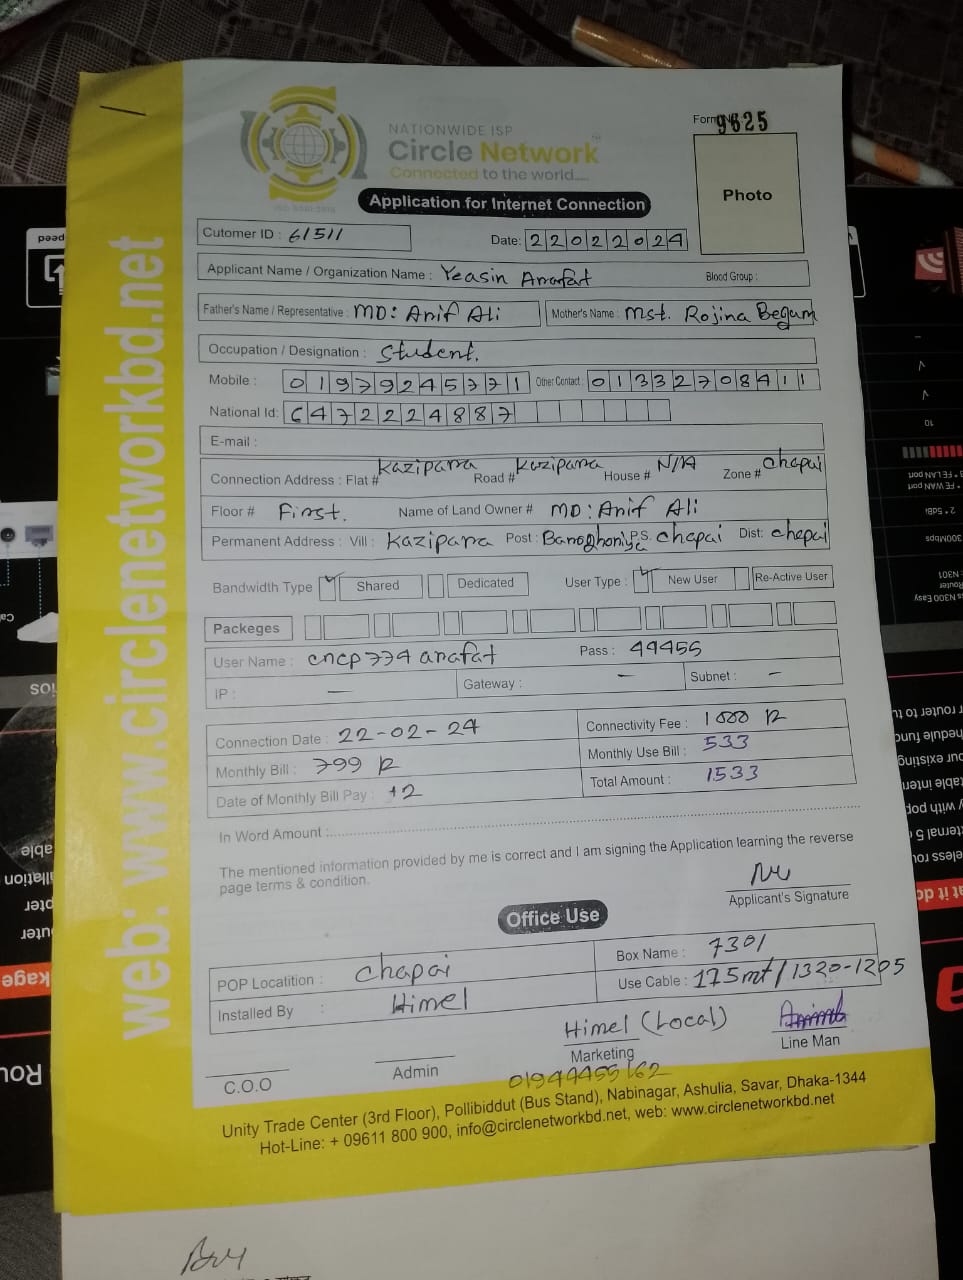 Form No 9625
NATIONWIDE ISP
Circle Network
Connected to the world.....
Photo
Application for Internet Connection
Cutomer ID : 61511
Date: 22022024
Applicant Name / Organization Name : Yeasin Arrafat Blood Group :
Father's Name / Representative : MD: Arif Ali Mother's Name : Mst. Rojina Begum
Occupation / Designation : Student.
Mobile : 01979245771 Other Contact : 01332708411
National Id: 6472224887
E-mail :
Connection Address : Flat # Kazipara Road # Kazipara House # N/A Zone # chapai
Floor # First. Name of Land Owner # MD: Arif Ali
Permanent Address : Vill : Kazipara Post : Baroghoriya P.S. chapai Dist: chapai
Bandwidth Type Shared Dedicated User Type : New User Re-Active User
Packeges
User Name : cncp774 arafat Pass : 44455
IP : — Gateway : — Subnet : —
Connection Date : 22-02-24 Connectivity Fee : 1000
Monthly Bill : 799 Monthly Use Bill : 533
Date of Monthly Bill Pay : +2 Total Amount : 1533
In Word Amount :
The mentioned information provided by me is correct and I am signing the Application learning the reverse
page terms & condition.
Applicant's Signature
Office Use
POP Locatition : chapai Box Name : 7301
Installed By : Himel Use Cable : 175mt / 1320-1205
Himel (Local)
C.O.O Admin Marketing Line Man
01944455162
Unity Trade Center (3rd Floor), Pollibiddut (Bus Stand), Nabinagar, Ashulia, Savar, Dhaka-1344
Hot-Line: + 09611 800 900, info@circlenetworkbd.net, web: www.circlenetworkbd.net
web: www.circlenetworkbd.net